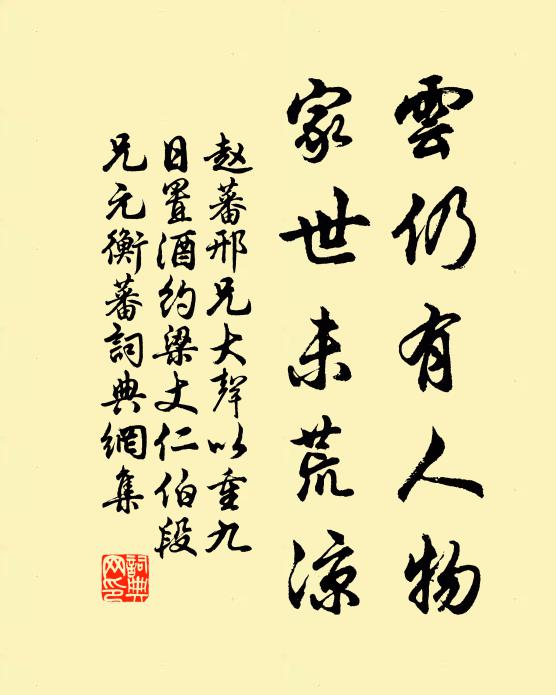 雲仍有人物
家世未荒凉
赵蕃邢兄大聲以重九
日置酒約梁丈仁伯段
兄元衡蕃詞典網集
詞典网印